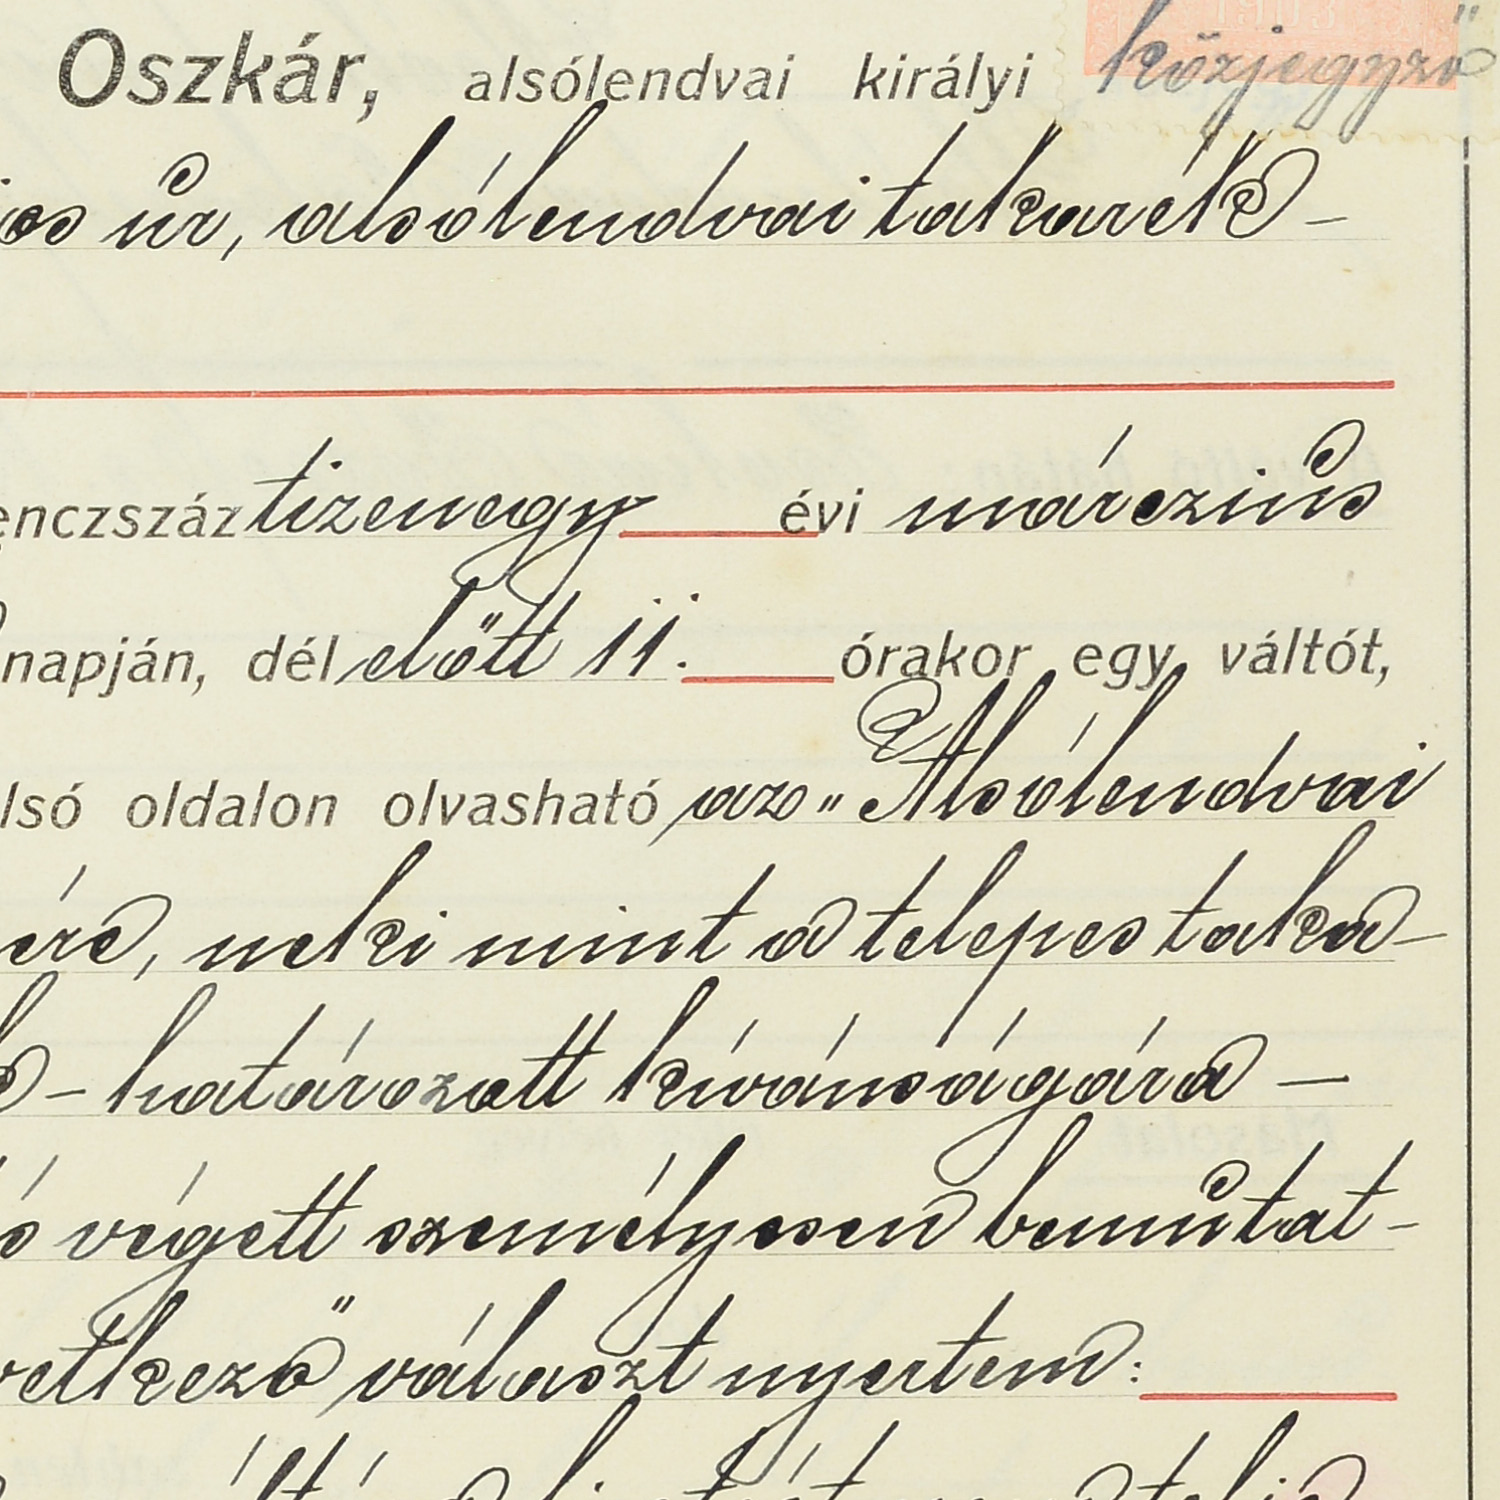 Oszkár, alsólendvai királyi közjegyző
úr, alsólendvai takarék-
enczszáz tizenegy évi márczius
napján, dél előtt 11. órakor egy váltót,
lsó oldalon olvasható az „Alsólendvai
neki mint a telepes taka-
- határozott kívánságára -
végett személyesen bemutat-
vetkező választ nyertem: